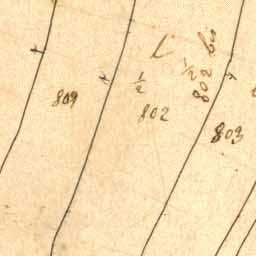 809
1/2
802
1/2 802
803